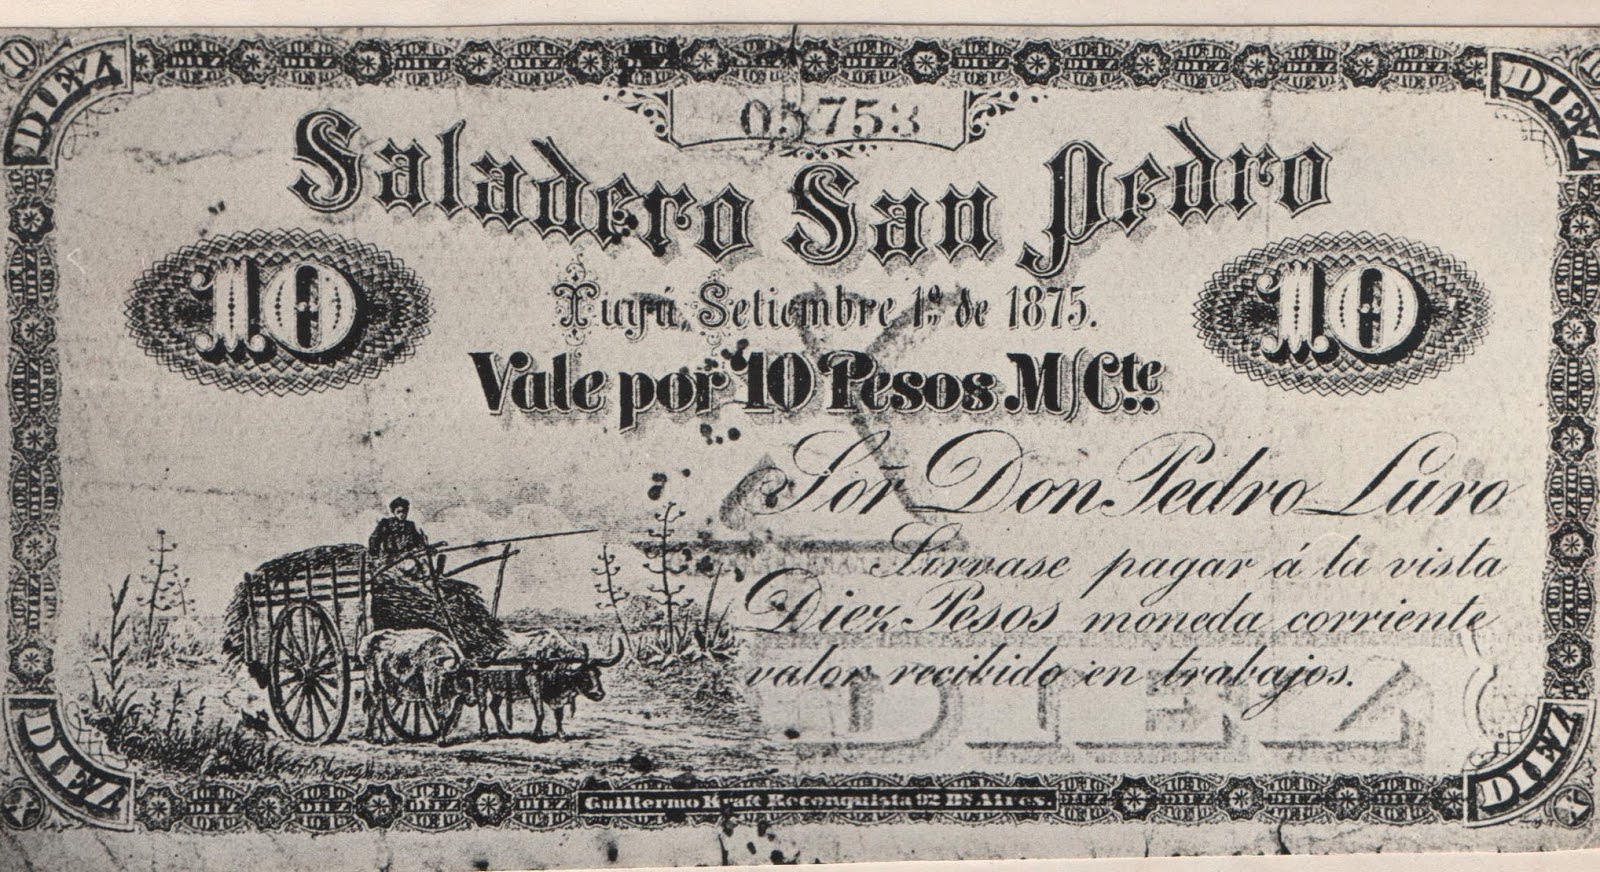 DIEZ
DIEZ
05753
Saladero San Pedro
10
10
Tuyú, Setiembre 1º de 1875.
Vale por 10 Pesos M/Cte
Sor Don Pedro Luro
Sirvase pagar á la vista
Diez Pesos moneda corriente
valor recibido en trabajos.
DIEZ
DIEZ
DIEZ
Guillermo Kraft Reconquista 92 Bs Aires.